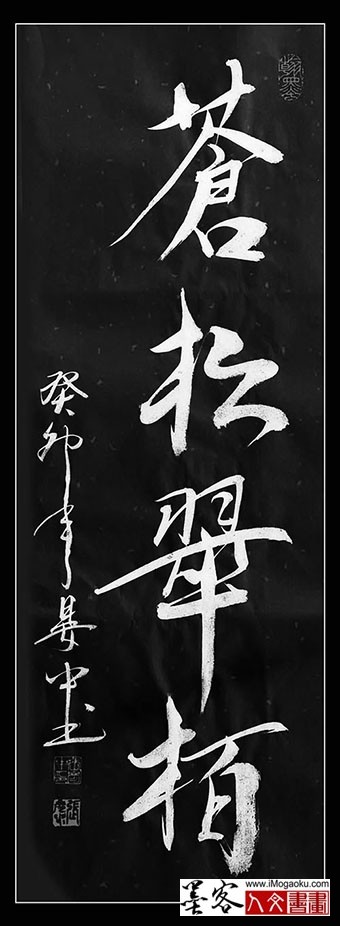 蒼松翠栢
癸卯年晏中书
墨客
www.iMogaoku.com
人文書畫